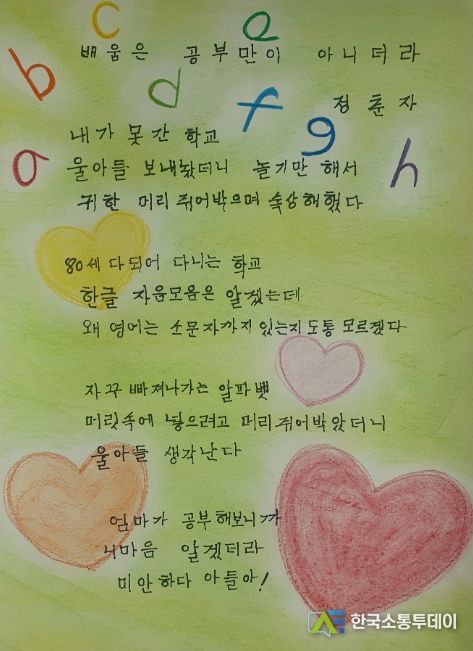 배움은 공부만이 아니더라
정춘자
내가 못간 학교
울아들 보내놨더니 놀기만 해서
귀한 머리 쥐어박으며 속상해했다
80세 다되어 다니는 학교
한글 자음모음은 알겠는데
왜 영어는 소문자까지 있는지 도통 모르겠다
자꾸 빠져나가는 알파벳
머릿속에 넣으려고 머리 쥐어박았더니
울아들 생각난다
엄마가 공부해보니까
니마음 알겠더라
미안하다 아들아!
a b c d e f g h
한국소통투데이